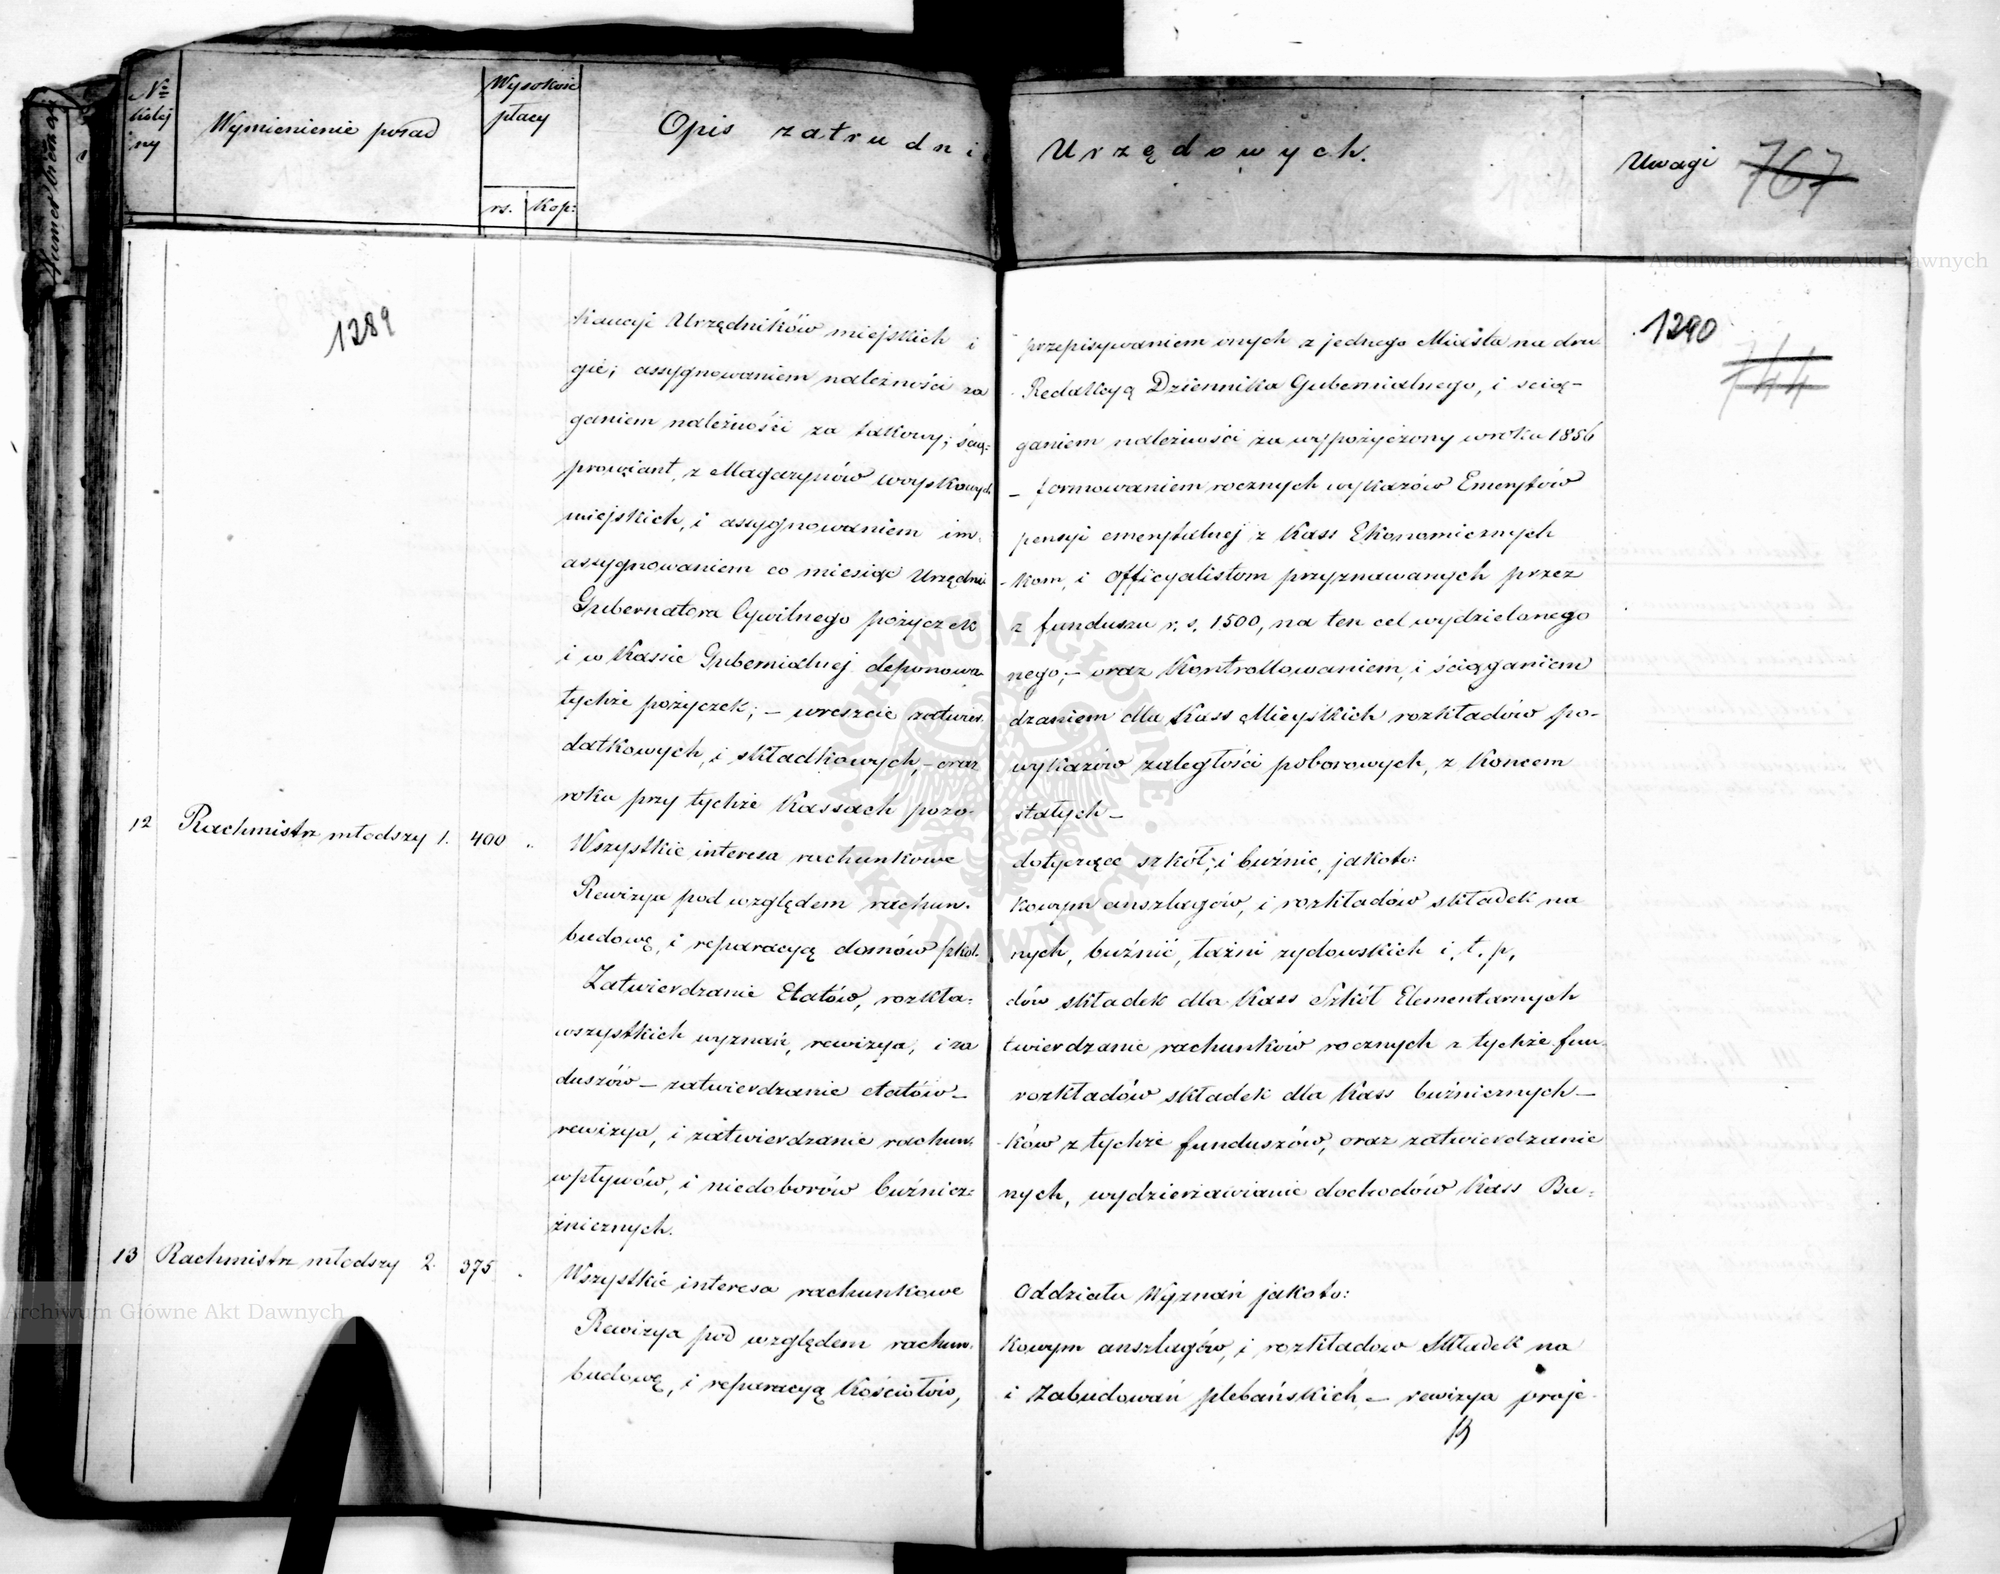 No
kolej
ny
Wymienienie posad
Wysokość
płacy
rs. Kop:
Opis zatrudni
Urzędowych.
Uwagi
767
1289
1290
744
kaucyi Urzędników miejskich i przepisywaniem onych z jednego Miasta na dru
gie; assygnowaniem należności za Redakcyą Dziennika Gubernialnego, i ścią-
ganiem należności za takowy; ścią- ganiem należności za wypożyczony w roku 1856
prowiant, z Magazynów woyskowych – formowaniem rocznych wykazów Emerytów
miejskich, i assygnowaniem im pensyi emerytalnej z Kass Ekonomicznych
assygnowaniem co miesiąc Urzędni kom, i officyalistom przyznawanych przez
Gubernatora Cywilnego pożyczek z funduszu r. s. 1500, na ten cel wydzielonego
i w Kassie Gubernialnej deponowa nego; – oraz Kontrollowaniem, i ściąganiem
tychże pożyczek; – wreszcie zatwier dzaniem dla Kass Mieyskich rozkładów po-
datkowych, i składkowych, – oraz wykazów zaległości poborowych, z końcem
roku przy tychże Kassach pozo- stałych –
12 Rachmistrz młodszy 1. 400 " Wszystkie interesa rachunkowe dotyczące szkół, i buźnic, jakoto:
Rewizya pod względem rachun- kowym anszlagów, i rozkładów składek na
budowę, i reparacyą domów szkol- nych, buźnić, łaźni zydowskich i. t. p.
Zatwierdzanie Etatów, rozkła- dów składek dla Kass Szkół Elementarnych
wszystkich wyznań, rewizya, i za twierdzanie rachunków rocznych z tychże fun-
duszów – zatwierdzanie etatów – rozkładów składek dla Kass buźnicznych –
rewizya, i zatwierdzanie rachun- ków z tychże funduszów, oraz zatwierdzanie
wpływów, i niedoborów buźnicz- nych, wydzierżawianie dochodów Kass Bu-
źnicznych.
13 Rachmistrz młodszy 2. 375 " Wszystkie interesa rachunkowe Oddziału Wyznań jakoto:
Rewizya pod względem rachun- kowym anszlagów, i rozkładow Składek na
budowę, i reparacyą Kościołów, i Zabudowań plebańskich, – rewizya proje-
Archiwum Główne Akt Dawnych
Archiwum Główne Akt Dawnych
ARCHIWUM GŁÓWNE AKT DAWNYCH